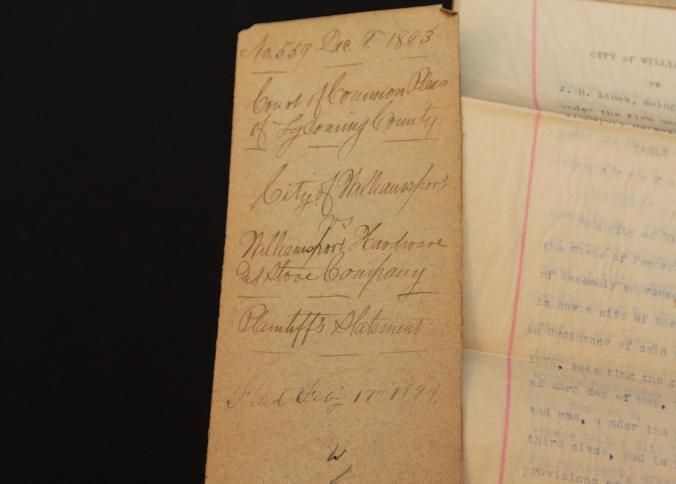 No. 559 Dec. T. 1893
Court of Common Pleas
of Lycoming County
City of Williamsport
vs
Williamsport Hardware
and Stove Company
Plaintiff's Statement
Filed Feby 17" 1894
CITY of WILLIA
vs
J. H. Linck, doing
under the firm na
City of W
the State of Pennsy
of Assembly approved
is now a city of the
an Ordinance of said
accepting the
ed 22rd day of
and was, under the
third class, and is
provisions of